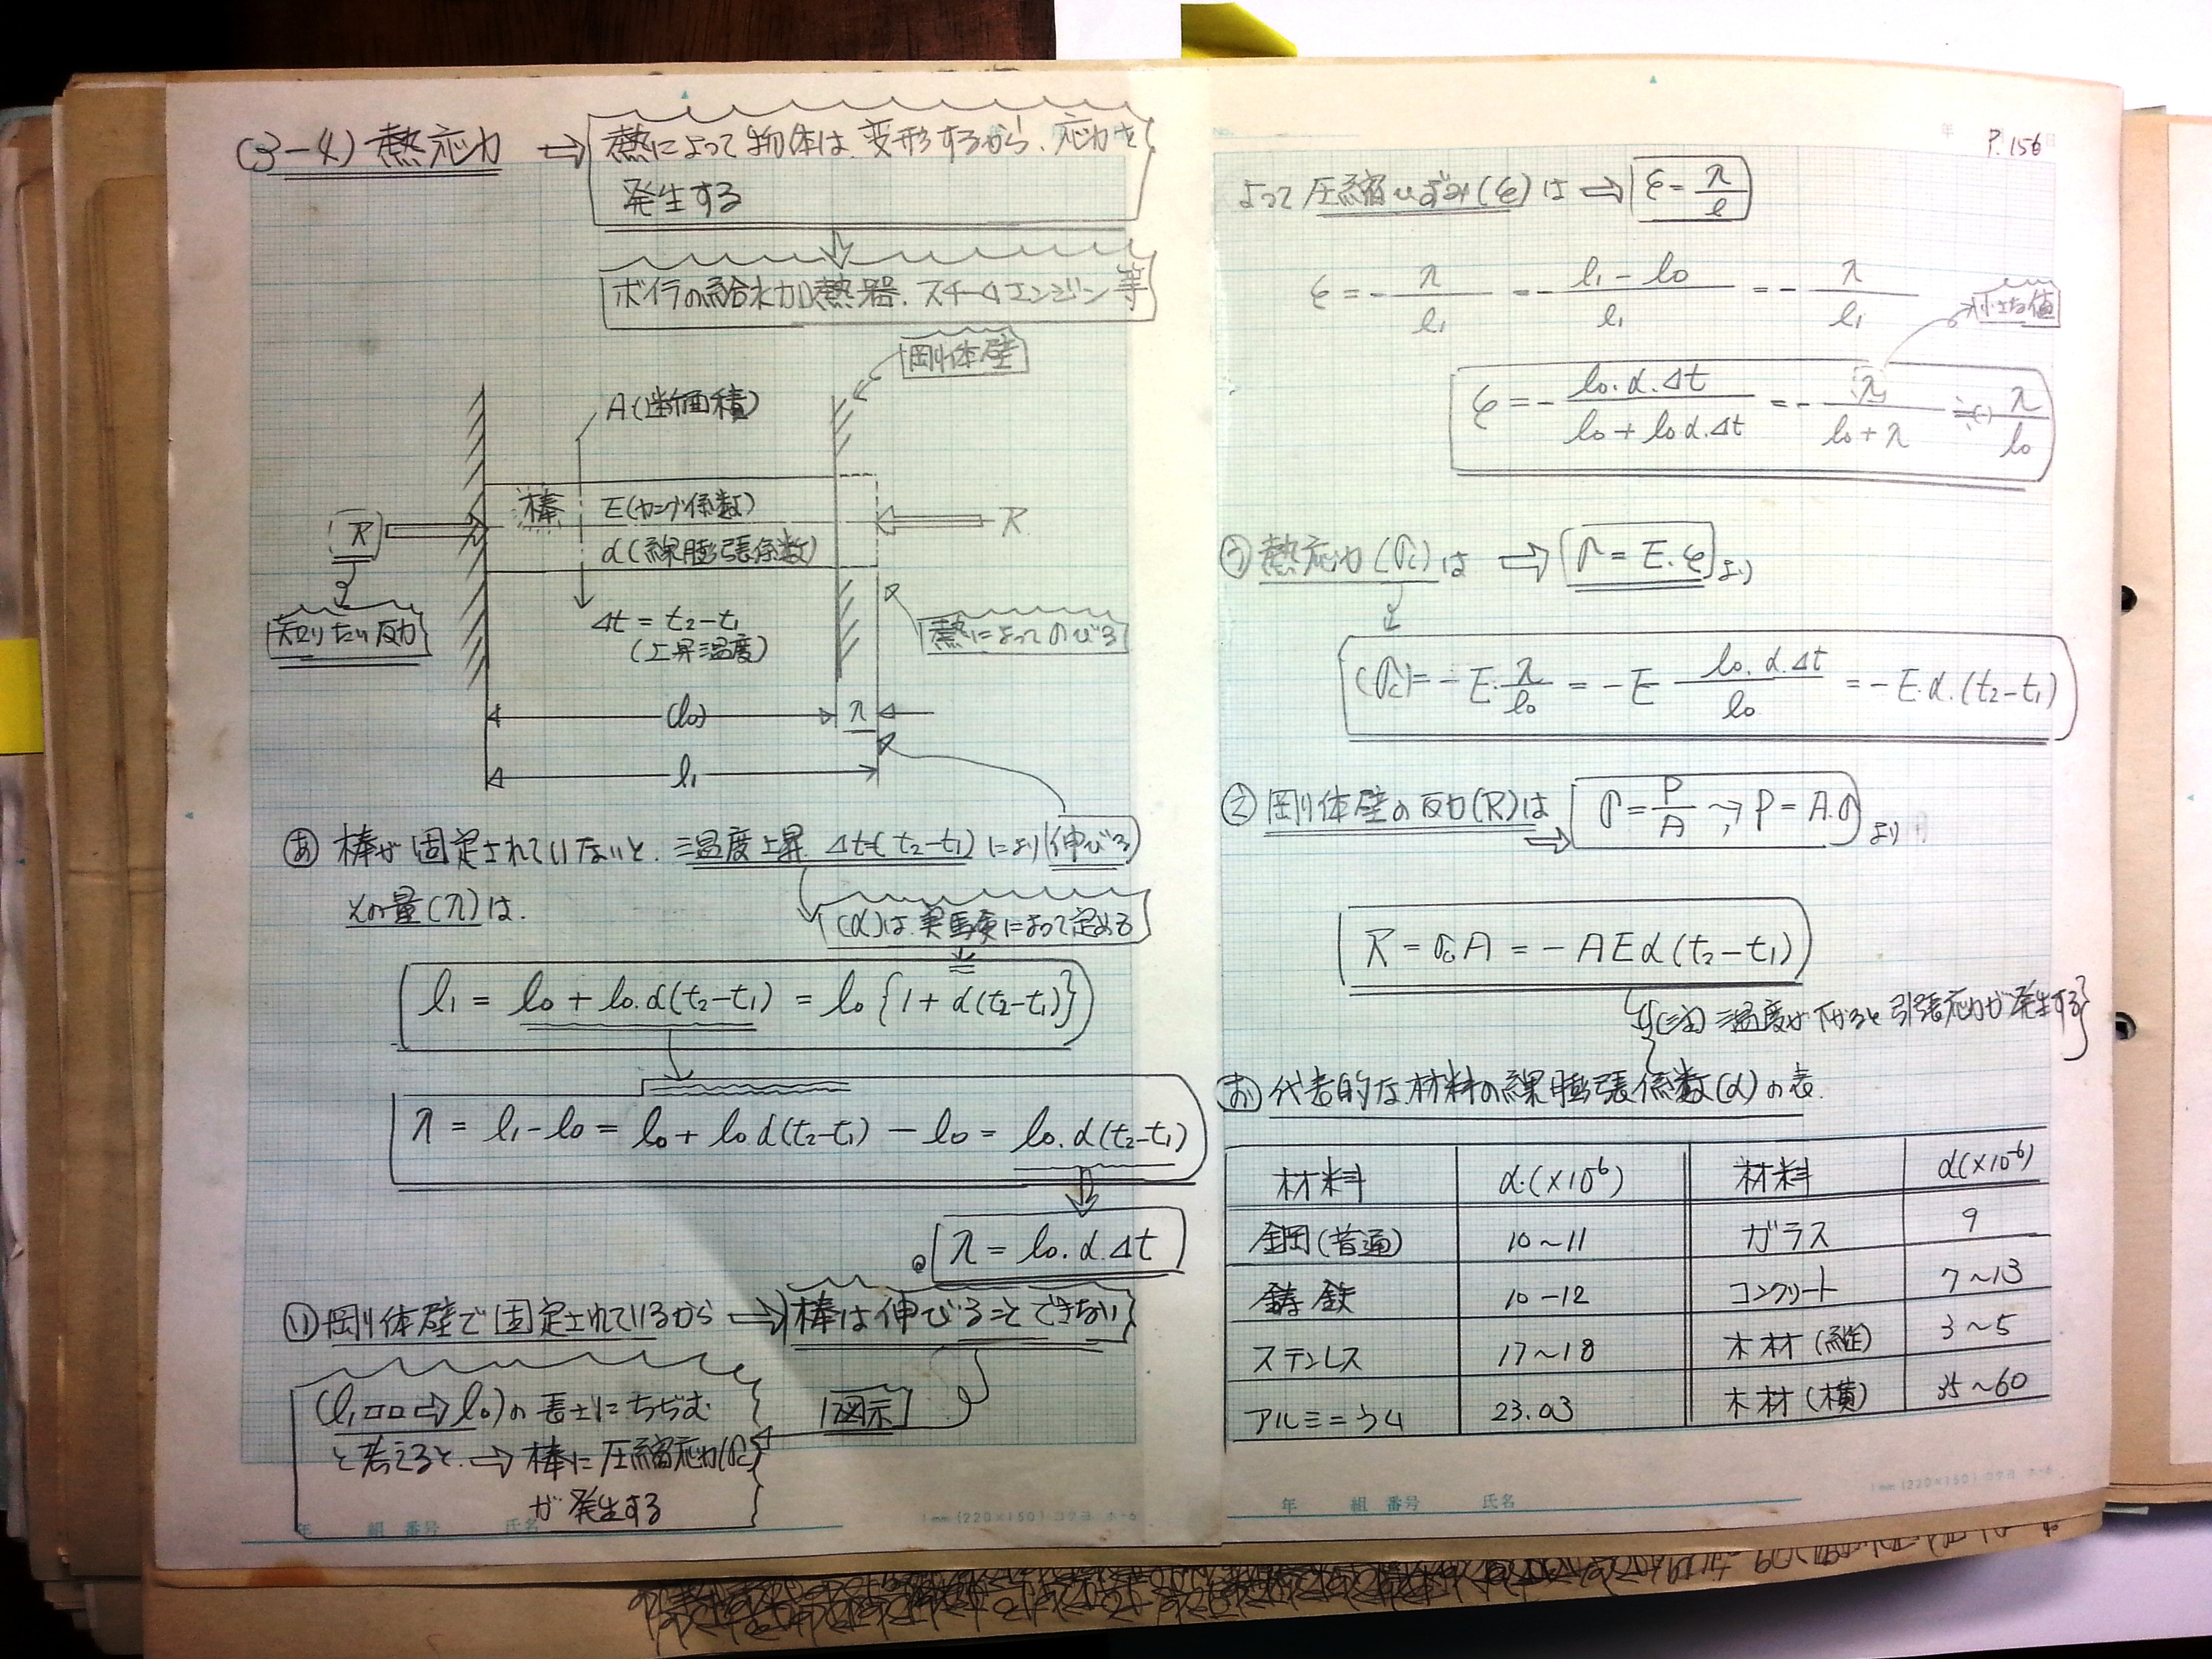 (3-4) 熱応力 ⇒ 熱によって物体は、変形するから、応力を
発生する
ボイラの給水加熱器、スチームエンジン等
剛体壁
A(断面積)
棒 E(ヤング係数)
α(線膨張係数)
R
R
知りたい反力
Δt = t₂-t₁
(上昇温度)
熱によってのびる
(l₀) λ
l₁
㋐ 棒が固定されていないと、温度上昇 Δt=(t₂-t₁)により伸びる
その量(λ)は、
(α)は実験によって定める
l₁ = l₀ + l₀.α(t₂-t₁) = l₀{1+α(t₂-t₁)}
λ = l₁-l₀ = l₀+l₀α(t₂-t₁)-l₀ = l₀.α(t₂-t₁)
λ = l₀.α.Δt
㋑ 剛体壁で固定されているから ⇒ 棒は伸びることできない
図示
(l₁ ⇒ l₀)の長さにちぢむ
と考えると ⇒ 棒に圧縮応力(σc)
が発生する
年 組 番号 氏名
1mm (220×150) コクヨ ホ-6
No.
年 日
P.156
よって圧縮ひずみ(ε)は ⇒ ε = λ/l
ε = -λ/l₁ = -(l₁-l₀)/l₁ = -λ/l₁
小さな値
ε = -(l₀.α.Δt)/(l₀+l₀α.Δt) = -λ/(l₀+λ) ≒(-) λ/l₀
㋒ 熱応力(σc)は ⇒ σ = E.ε より
(σc) = -E.λ/l₀ = -E (l₀.α.Δt)/l₀ = -E.α.(t₂-t₁)
㋓ 剛体壁の反力(R)は ⇒ σ = P/A → P = A.σ より
R = σc A = -AEα(t₂-t₁)
(注) 温度が下がると引張応力が発生する
㋔ 代表的な材料の線膨張係数(α)の表
材料 α.(×10⁶) 材料 α(×10⁻⁶)
鋼(普通) 10～11 ガラス 9
鋳鉄 10-12 コンクリート 7～13
ステンレス 17～18 木材(縦) 3～5
アルミニウム 23.03 木材(横) 35～60
年 組 番号 氏名
1mm (220×150) コクヨ ホ-6